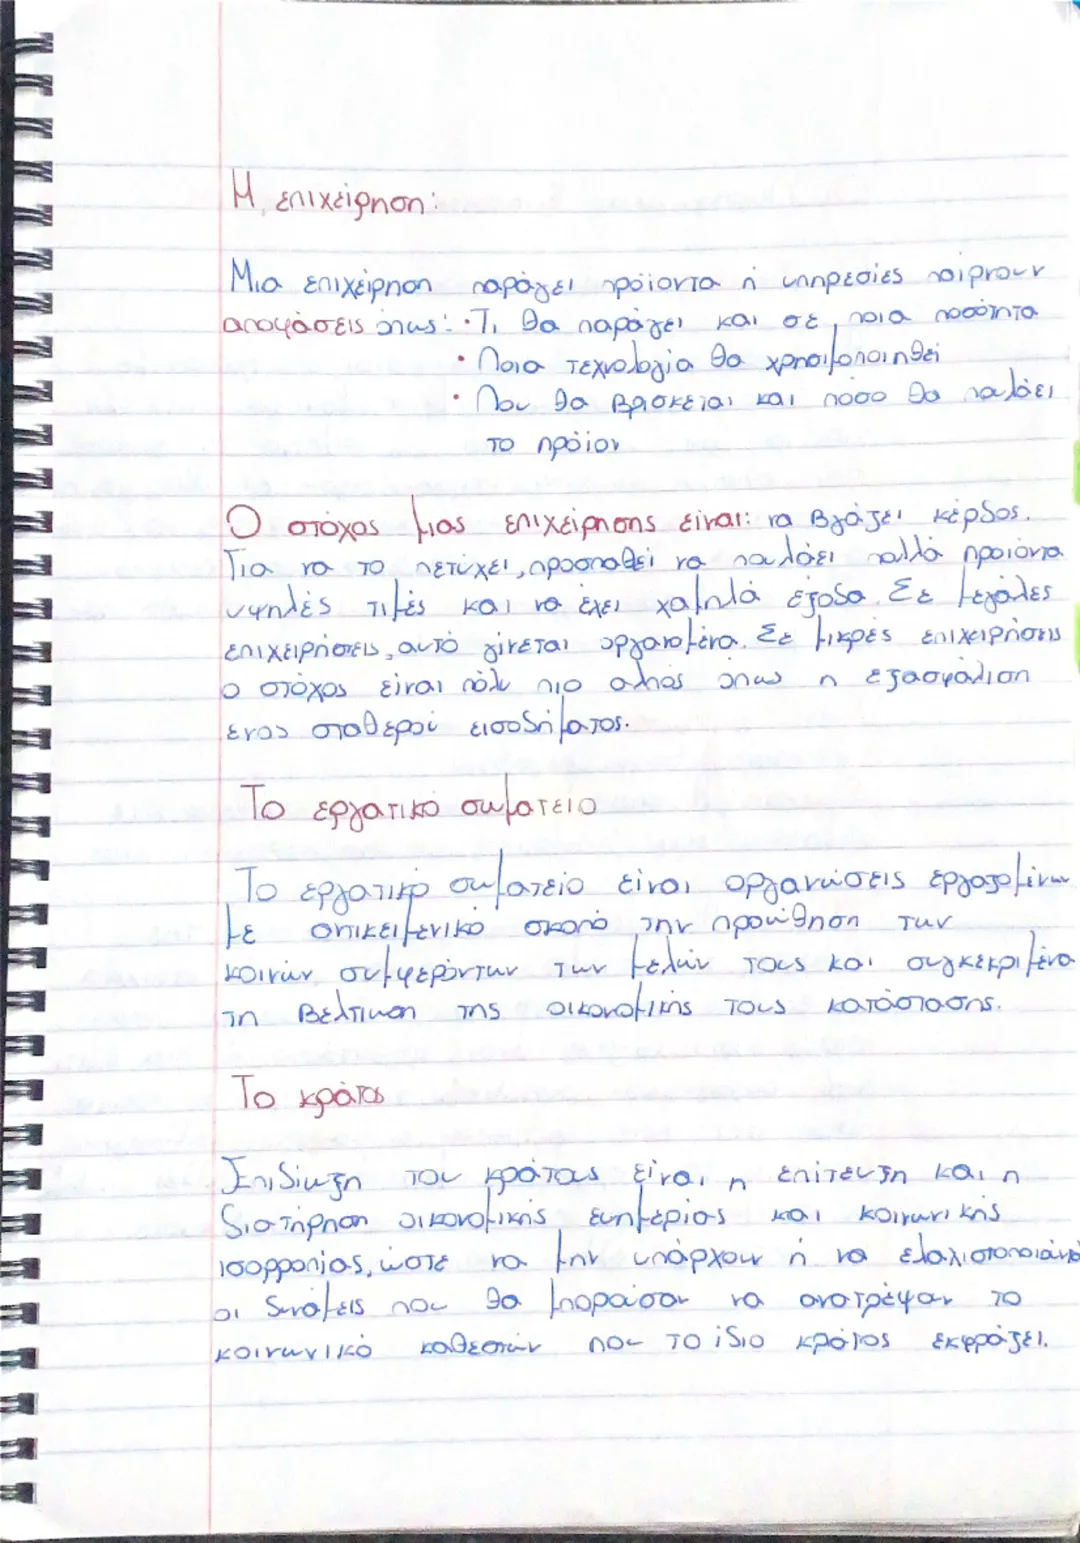 Η επιχείρηση:
Μια επιχείρηση παράγει πρόϊοντα ή υπηρεσίες παίρνουν
αποφάσεις όπως: · Τι θα παράγει και σε ποια ποσότητα
· Ποια τεχνολογία θα χρησιμοποιηθεί
· Που θα βρίσκεται και πόσο θα πουλάει
το πρόϊον
Ο στόχος μιας επιχείρησης είναι: να βγάζει κέρδος.
Για να το πετύχει, προσπαθεί να πουλάει πολλά προιόντα
υψηλές τιμές και να έχει χαμηλά έξοδα. Σε μεγάλες
επιχειρήσεις, αυτό γίνεται οργανομένα. Σε μικρές επιχειρήσεις
ο στόχος είναι πόλυ πιο απλός όπως η εξασφάλιση
ενος σταθερού εισοδήματος.
Το εργατικό σωματειο
Το εργατικό σωματείο είναι οργανώσεις εργαζομένων
με αντικειμενικό σκοπό την προώθηση των
κοινών συμφερόντων των μελών τους και συγκεκριμένα
τη βελτίωση της οικονομικής τους κατάστασης.
Το κράτος
Επιδίωξη του κράτους είναι η επίτευξη και η
διατήρηση οικονομικής ευημερίας και κοινωνικής
ισορροπίας, ώστε να μην υπάρχουν ή να ελαχιστοποιούνται
οι δυνάμεις που θα μπορούσαν να ανατρέψουν το
κοινωνικό καθεστών που το ίδιο κράτος εκφράζει.